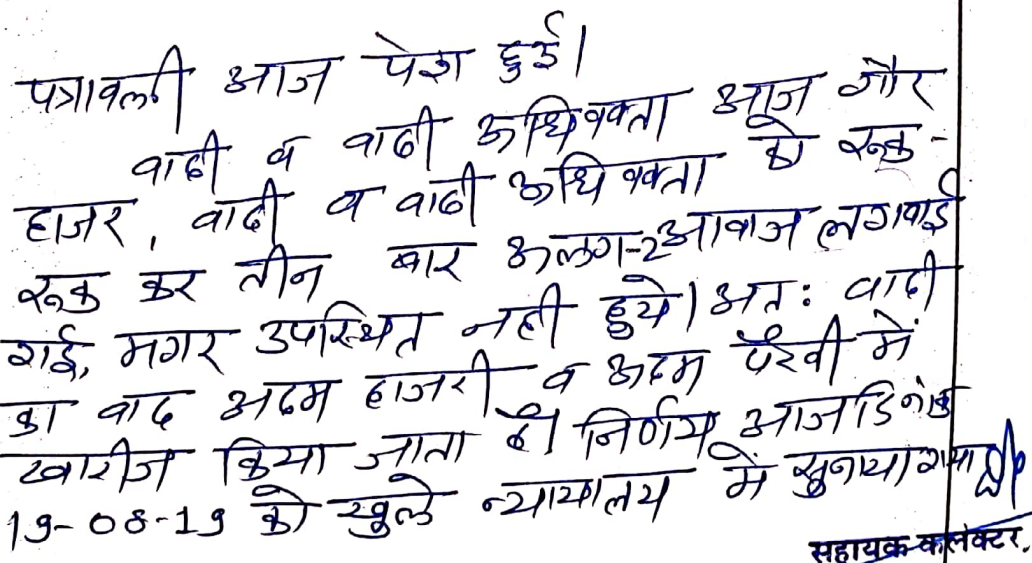 पत्रावली आज पेश हुई।
वादी व वादी अधिवक्ता आज गैर
हाजर, वादी व वादी अधिवक्ता को रूक-
रूक कर तीन बार अलग-2 आवाज लगवाई
गई, मगर उपस्थित नही हुये। अत: वादी
का वाद अदम हाजरी व अदम पैरवी में
खारीज किया जाता है। निर्णय आज दिनांक
19-08-19 को खुले न्यायालय में सुनाया गया
सहायक कलेक्टर.